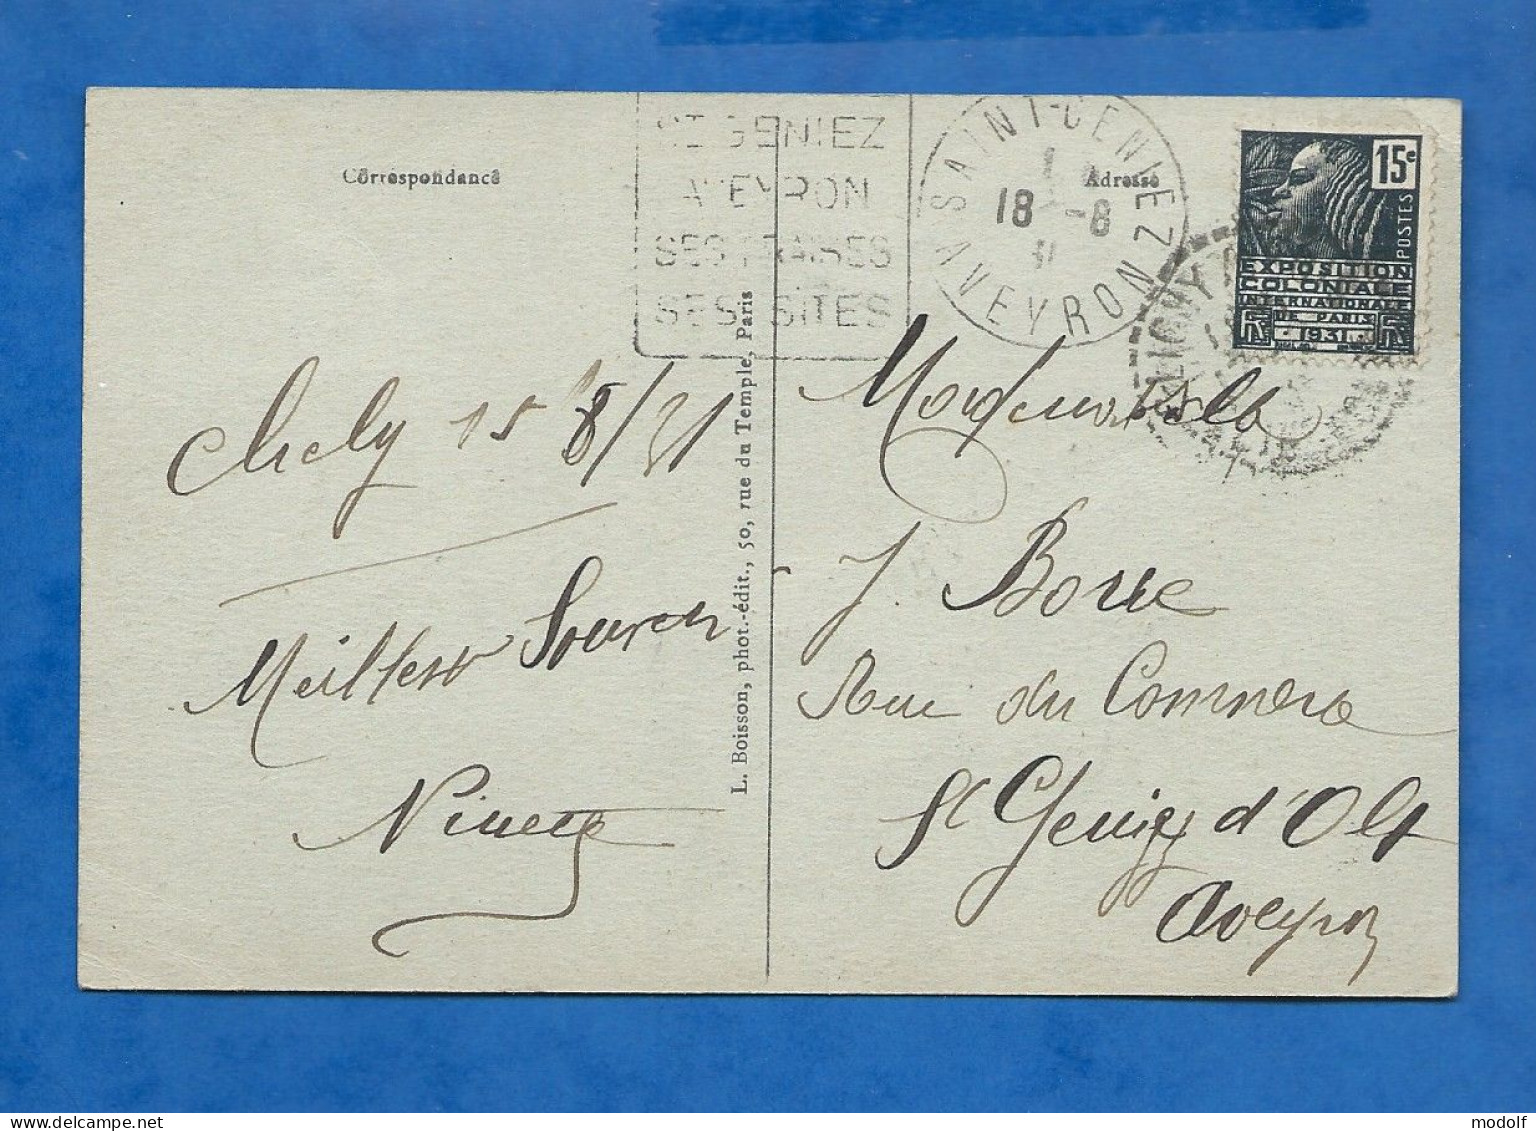 ST GENIEZ
AVEYRON
SES FRAISES
SES SITES
SAINT-GENIEZ
18 -8
31
AVEYRON
Correspondance
Adresse
15c
POSTES
EXPOSITION
COLONIALE
INTERNATIONALE
DE PARIS
1931
15 8/31
Meilleur Souvenir
Ninette
L. Boisson, phot.-édit., 50, rue du Temple, Paris
Mademoiselle
J. Borie
Rue du Commerce
St Geniez d'Olt
Aveyron
modolf